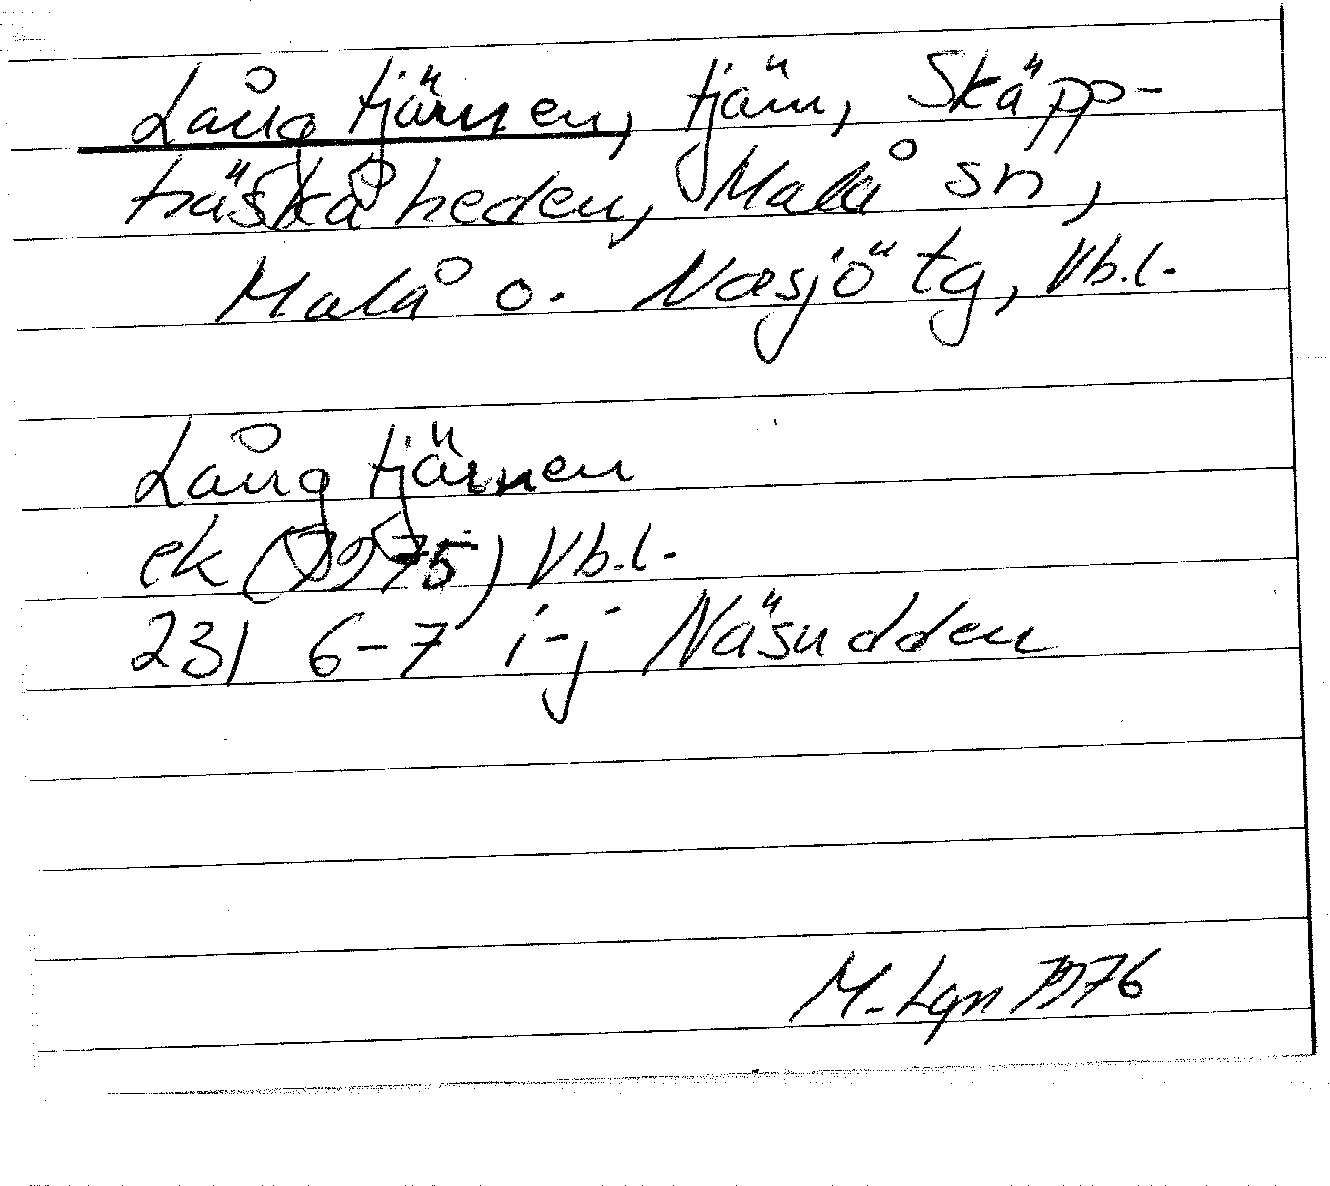 Långtjärnen, tjärn, Skäpp-
träskåheden, Malå sn,
Malå o. Norsjö tg, Vb.l.
Långtjärnen
ek (1975) Vb.l.
231 6-7 i-j Näsudden
M-Lgn 1976